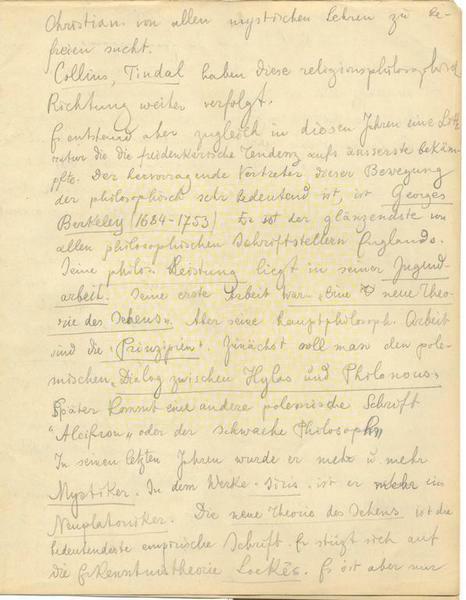 Christian. von allen mystischen Lehren zu be-
freien sucht.
Collins, Tindal haben diese religionsphilosophische
Richtung weiter verfolgt.
Es entstand aber zugleich in diesen Jahren eine Litte
ratur die die freidenkerische Tendenz aufs äusserste bekäm
pfte. Der hervorragende Vertreter dieser Bewegung
der philosophisch sehr bedeutend ist, ist Georges
Berkeley (1684-1753) Er ist der glänzendste von
allen philosophischen Schriftstellern Englands.
Seine philos. Leistung liegt in seiner Jugend-
arbeit. Seine erste Arbeit war „Eine neue Theo-
rie des Sehens". Aber seine hauptphilosoph. Arbeit
sind die „Prinzipien". Zunächst soll man den pole-
mischen „Dialog zwischen Hylas und Philonous"
Später kommt eine andere polemische Schrift
"Alcifron" oder der schwache Philosoph
In seinen letzten Jahren wurde er mehr u. mehr
Mystiker. In dem Werke - Siris - ist er mehr ein
Neuplatoniker. Die neue Theorie des Sehens ist die
bedeutendste empirische Schrift. Er stützt sich auf
die Erkenntnistheorie Lockes. Er ist aber nur